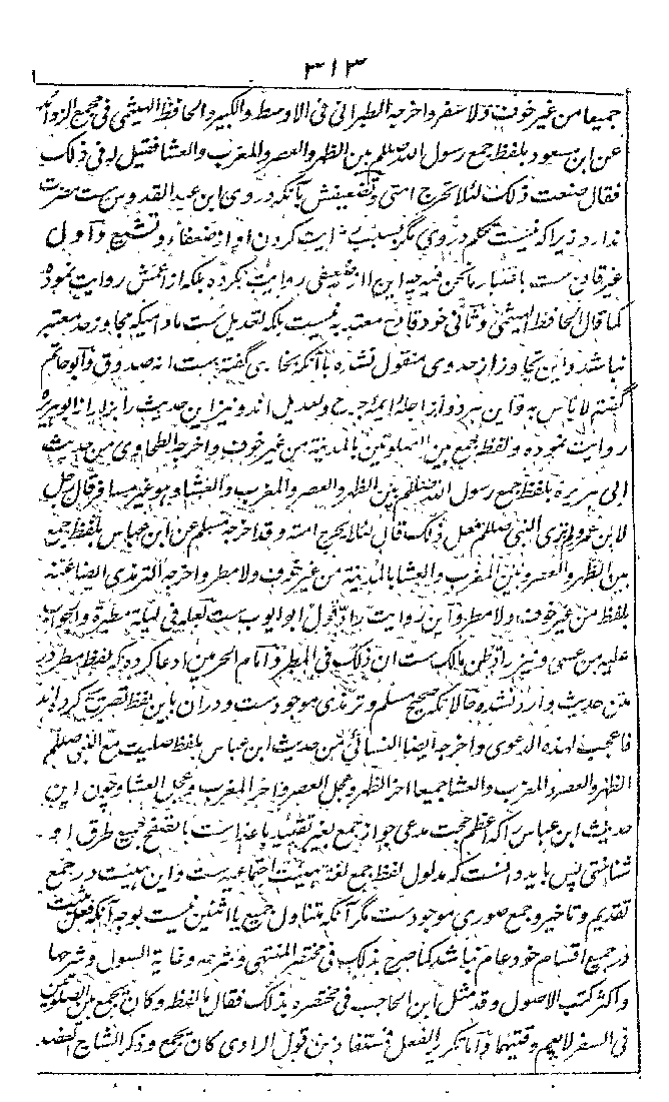 ۳۱۳
جميعا من غير خوف ولا سفر واخرجه الطبرانی فی الاوسط والکبیر والحافظ الهیثمی فی مجمع الزوائد
عن ابن مسعود بلفظ جمع رسول الله صللم بین الظهر والعصر والمغرب والعشا فقیل له فی ذلک
فقال صنعت ذلک لئلا تحرج امتی وتضعیفش بآنکه در وی ابن عبد القدوس ست مضرت
ندارد زیرا که نیست تکلم در وی مگر بسبب روایت کردن او از ضعفاء و تشیع و اول
غیر قادح ست باعتبار ما نحن فیه چه این را از ضعیفی روایت نکرده بلکه از اعمش روایت نموده
کما قال الحافظ الهیثمی و ثانی خود قادح معتد به نیست بلکه تعدیل ست مادامیکه مجاوز حد معتبر
نباشد و این تجاوز از حد وی منقول نشده با آنکه بخاری گفته ست انه صدوق وابو حاتم
گفته لا باس به و این هر دو از اجلهٔ ائمهٔ جرح و تعدیل اند و نیز این حدیث را بزار از ابو هریره
روایت نموده و لفظه جمع بین الصلوتین بالمدینة من غیر خوف واخرجه الطحاوی من حدیث
ابی هریره بلفظ جمع رسول الله صللم بین الظهر والعصر والمغرب والعشا وهو غیر مسافر قال رجل
لابن عمر لم تری النبی صللم فعل ذلک قال لئلا یحرج امته و قد اخرجه مسلم عن ابن عباس بلفظ جمع
بین الظهر والعصر وبین المغرب والعشا بالمدینة من غیر خوف ولا مطر واخرجه الترمذی ایضا عنه
بلفظ من غیر خوف ولا مطر و این روایت راد قول ابو ایوب ست لعله فی لیلة مطیرة والجواب
علیه من عسی و نیز راد ظن مالک ست ان ذلک فی المطر و امام الحرمین ادعا کرده که لفظ مطر در
متن حدیث وارد نشده حالانکه صحیح مسلم و ترمذی موجود ست و در آن باین لفظ تصریح کرده اند
فاعجب لهذه الدعوی واخرجه ایضا النسائی من حدیث ابن عباس بلفظ صلیت مع النبی صللم
الظهر والعصر والمغرب والعشا جمیعا اخر الظهر وعجل العصر واخر المغرب وعجل العشا و چون این
حدیث ابن عباس را که اعظم حجت مدعی جواز جمع بغیر تقیید باعذار است بالتصفح جمیع طرق او
شناختی پس باید دانست که مدلول لفظ جمع لغة هیئت اجتماعیه ست و این هیئت در جمع
تقدیم و تاخیر و جمع صوری موجود ست مگر آنکه متناول جمیع یا اثنین نیست بوجه آنکه فعل مثبت
در جمیع اقسام خود عام نباشد کما صرح بذلک فی مختصر المنتهی و شرحه و غایة السول و شرحها
و اکثر کتب الاصول و قد مثل ابن الحاجب فی مختصره بذلک فقال ما لفظه وکان یجمع بین الصلوتین
فی السفر لا یعم وقتیهما و اما تکرر الفعل فمستفاد من قول الراوی کان یجمع و ذکر الشارح العضد